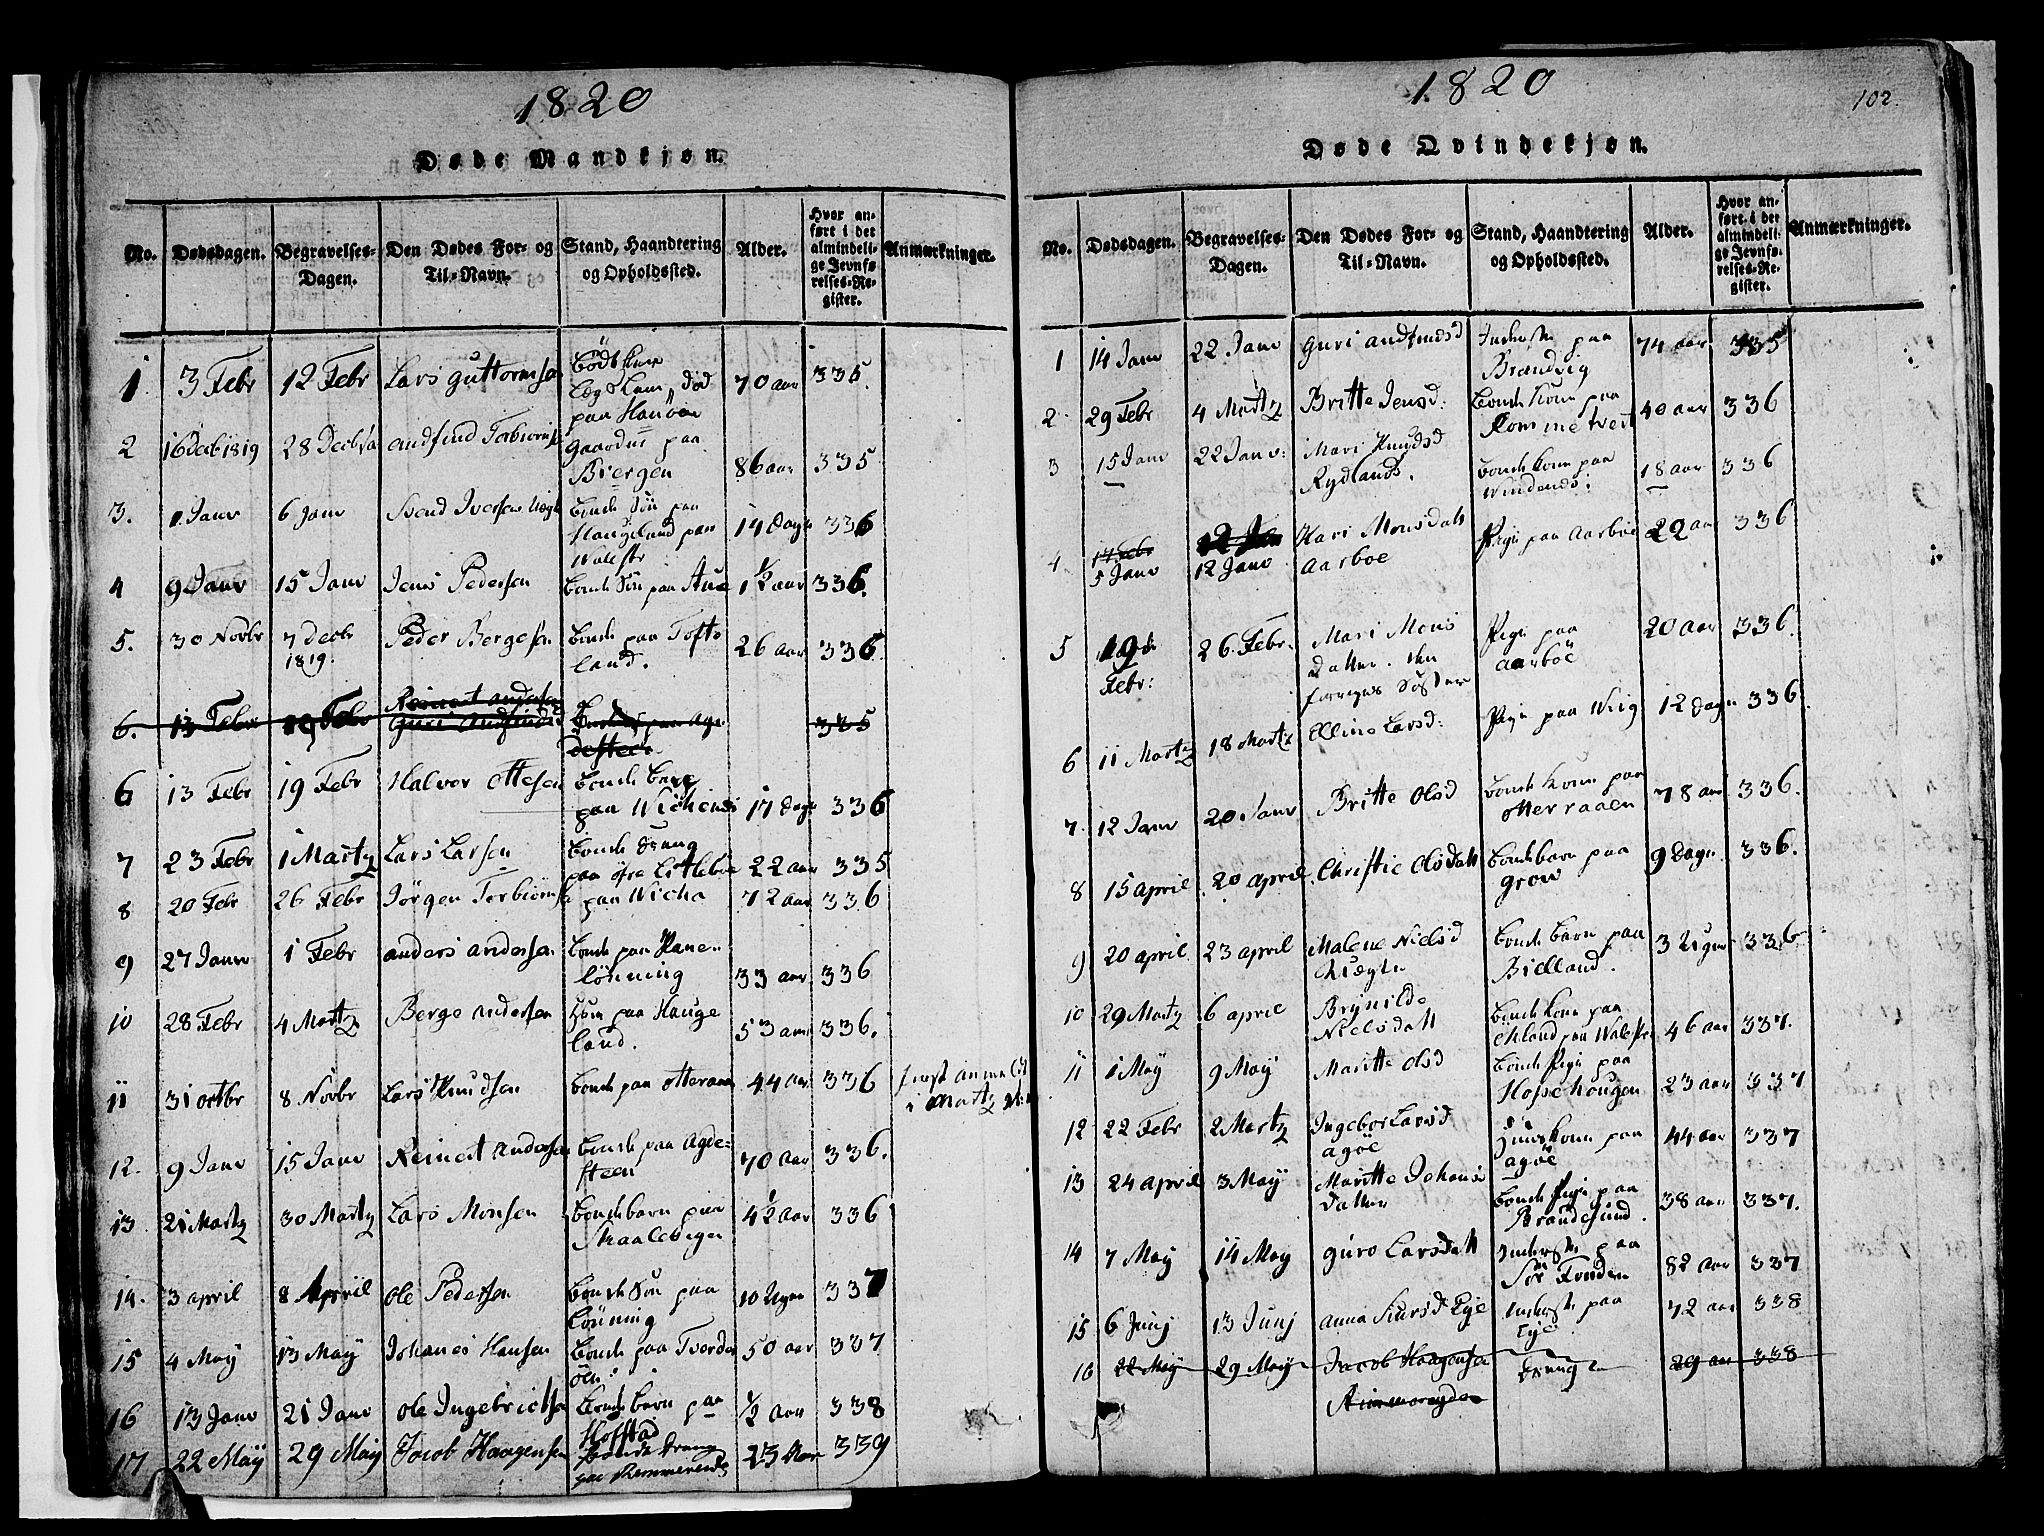 1820
Døde Mandkjøn.
No. Dødsdagen. Begravelses-Dagen. Den Dødes For- og Til-Navn. Stand, Haandtering og Opholdssted. Alder. Hvor anført i det almindelige Jevnførelses-Register. Anmærkninger.
1 3 Febr 12 Febr Lars Guttormsen paa 70 aar 335.
2 16 Decb 1819 28 Decbr Andfind Torbiørns Gaardm paa Biergen 86 aar 335
3. 1 Janv 6 Janv Svend Iversen Bonde Søn paa Haugeland paa 14 Dage 336
4 9 Janv 15 Janv Jens Pedersen Bonde Søn paa 1 1/2 aar 336.
5. 30 Novbr 7 Decbr 1819. Peder Bergesen Bonde paa Tofteland. 26 aar 336.
6. 13 Febr 19 Febr Reinert Andersen Guri Andfinds paa Agdesteen 335
6 13 Febr 19 Febr Halvor Ottesen Bonde Barn paa 17 Dage 336
7 23 Febr 1 Martz Lars Larsen Bonde Dreng paa øfre Litleboe 22 aar 335
8 20 Febr 26 Febr Jørgen Torbiørns paa Wicha 72 aar 336
9 27 Janv 1 Febr Anders Andersen Bonde paa Lønning 33 aar 336
10 28 Febr 4 Martz Berge Andersen paa Haugeland. 53 aar 336.
11 31 Octbr 8 Novbr Lars Knudsen Bonde paa Otteraaen 44 aar 336 i Martz
12. 9 Janv 15 Janv Reinert Andersen Bonde paa Agdesteen 70 aar 336.
13. 21 Martz 30 Martz Lars Monsen Bondebarn paa 4 1/2 aar 336
14. 3 April 8 April Ole Pedersen Bonde Søn paa Lønning 10 Uger 337
15 4 May 13 May Johanes Hansen Bonde paa 50 aar 337
16 13 Janv 21 Janv Ole Ingebrictsen Bonde barn paa Hofstad 1/2 aar 338
17 22 May 29 May Jacob Haagensen Bonde Dreng paa 23 Aar 339
1820
102.
Døde Qvindekjøn.
No. Dødsdagen. Begravelses-Dagen. Den Dødes For- og Til-Navn. Stand, Haandtering og Opholdssted. Alder. Hvor anført i det almindelige Jevnførelses-Register. Anmærkninger.
1 14 Janv 22 Janv Guri Andfindsd Inderste paa Brandvig 74 aar 335
2. 29 Febr 4 Martz Britte Jensd: Bonde Kone paa Rommetveit 40 aar 336
3 15 Janv 22 Janv: Mari Knudsd Rydlands. Bonde Kone paa 18 aar 336
4 17 Febr 5 Janv 12 Jan 12 Janv Kari Monsdatt Aarboe Pige paa Aarboe 22 aar 336
5 19de Febr: 26. Febr. Mari Mons Datter. den forriges Søster Pige paa Aarbøe 20 aar 336.
6 11 Martz 18 Martz Elline Larsd: Pige paa Wiig 12 Dage 336.
7. 12 Janv 20 Janv Britte Olsd Bonde Kone paa Otterraaen 78 aar 336.
8 15 April 20 April Christie Olsdatt Bonde barn paa Grov 9 Dage 336.
9 20 April 23 April Malene Nielsd Bonde barn paa Bielland. 3 Uger 336
10 29 Martz 6 April Brynilde Nielsdatt Bonde Kone paa 46 aar 337.
11 1 May 9 May Maritte Olsd Bonde Pige paa Hopsehougen 23 aar 337
12 22 Febr 2 Martz Ingebor Larsd Agøe Huuskone paa Agøe 44 aar 337
13 24 April 3 May Maritte Johans Datter Bonde Pige paa Brandesund. 38 aar 337.
14 7 May 14 May Guro Larsdatt Inderste paa 82 aar 337
15 6 Junj 13 Junj Anna Eye Inderste paa Eye 72 aar 338
16 22 May 29 May Jacob Haagensen Dreng 29 aar 338